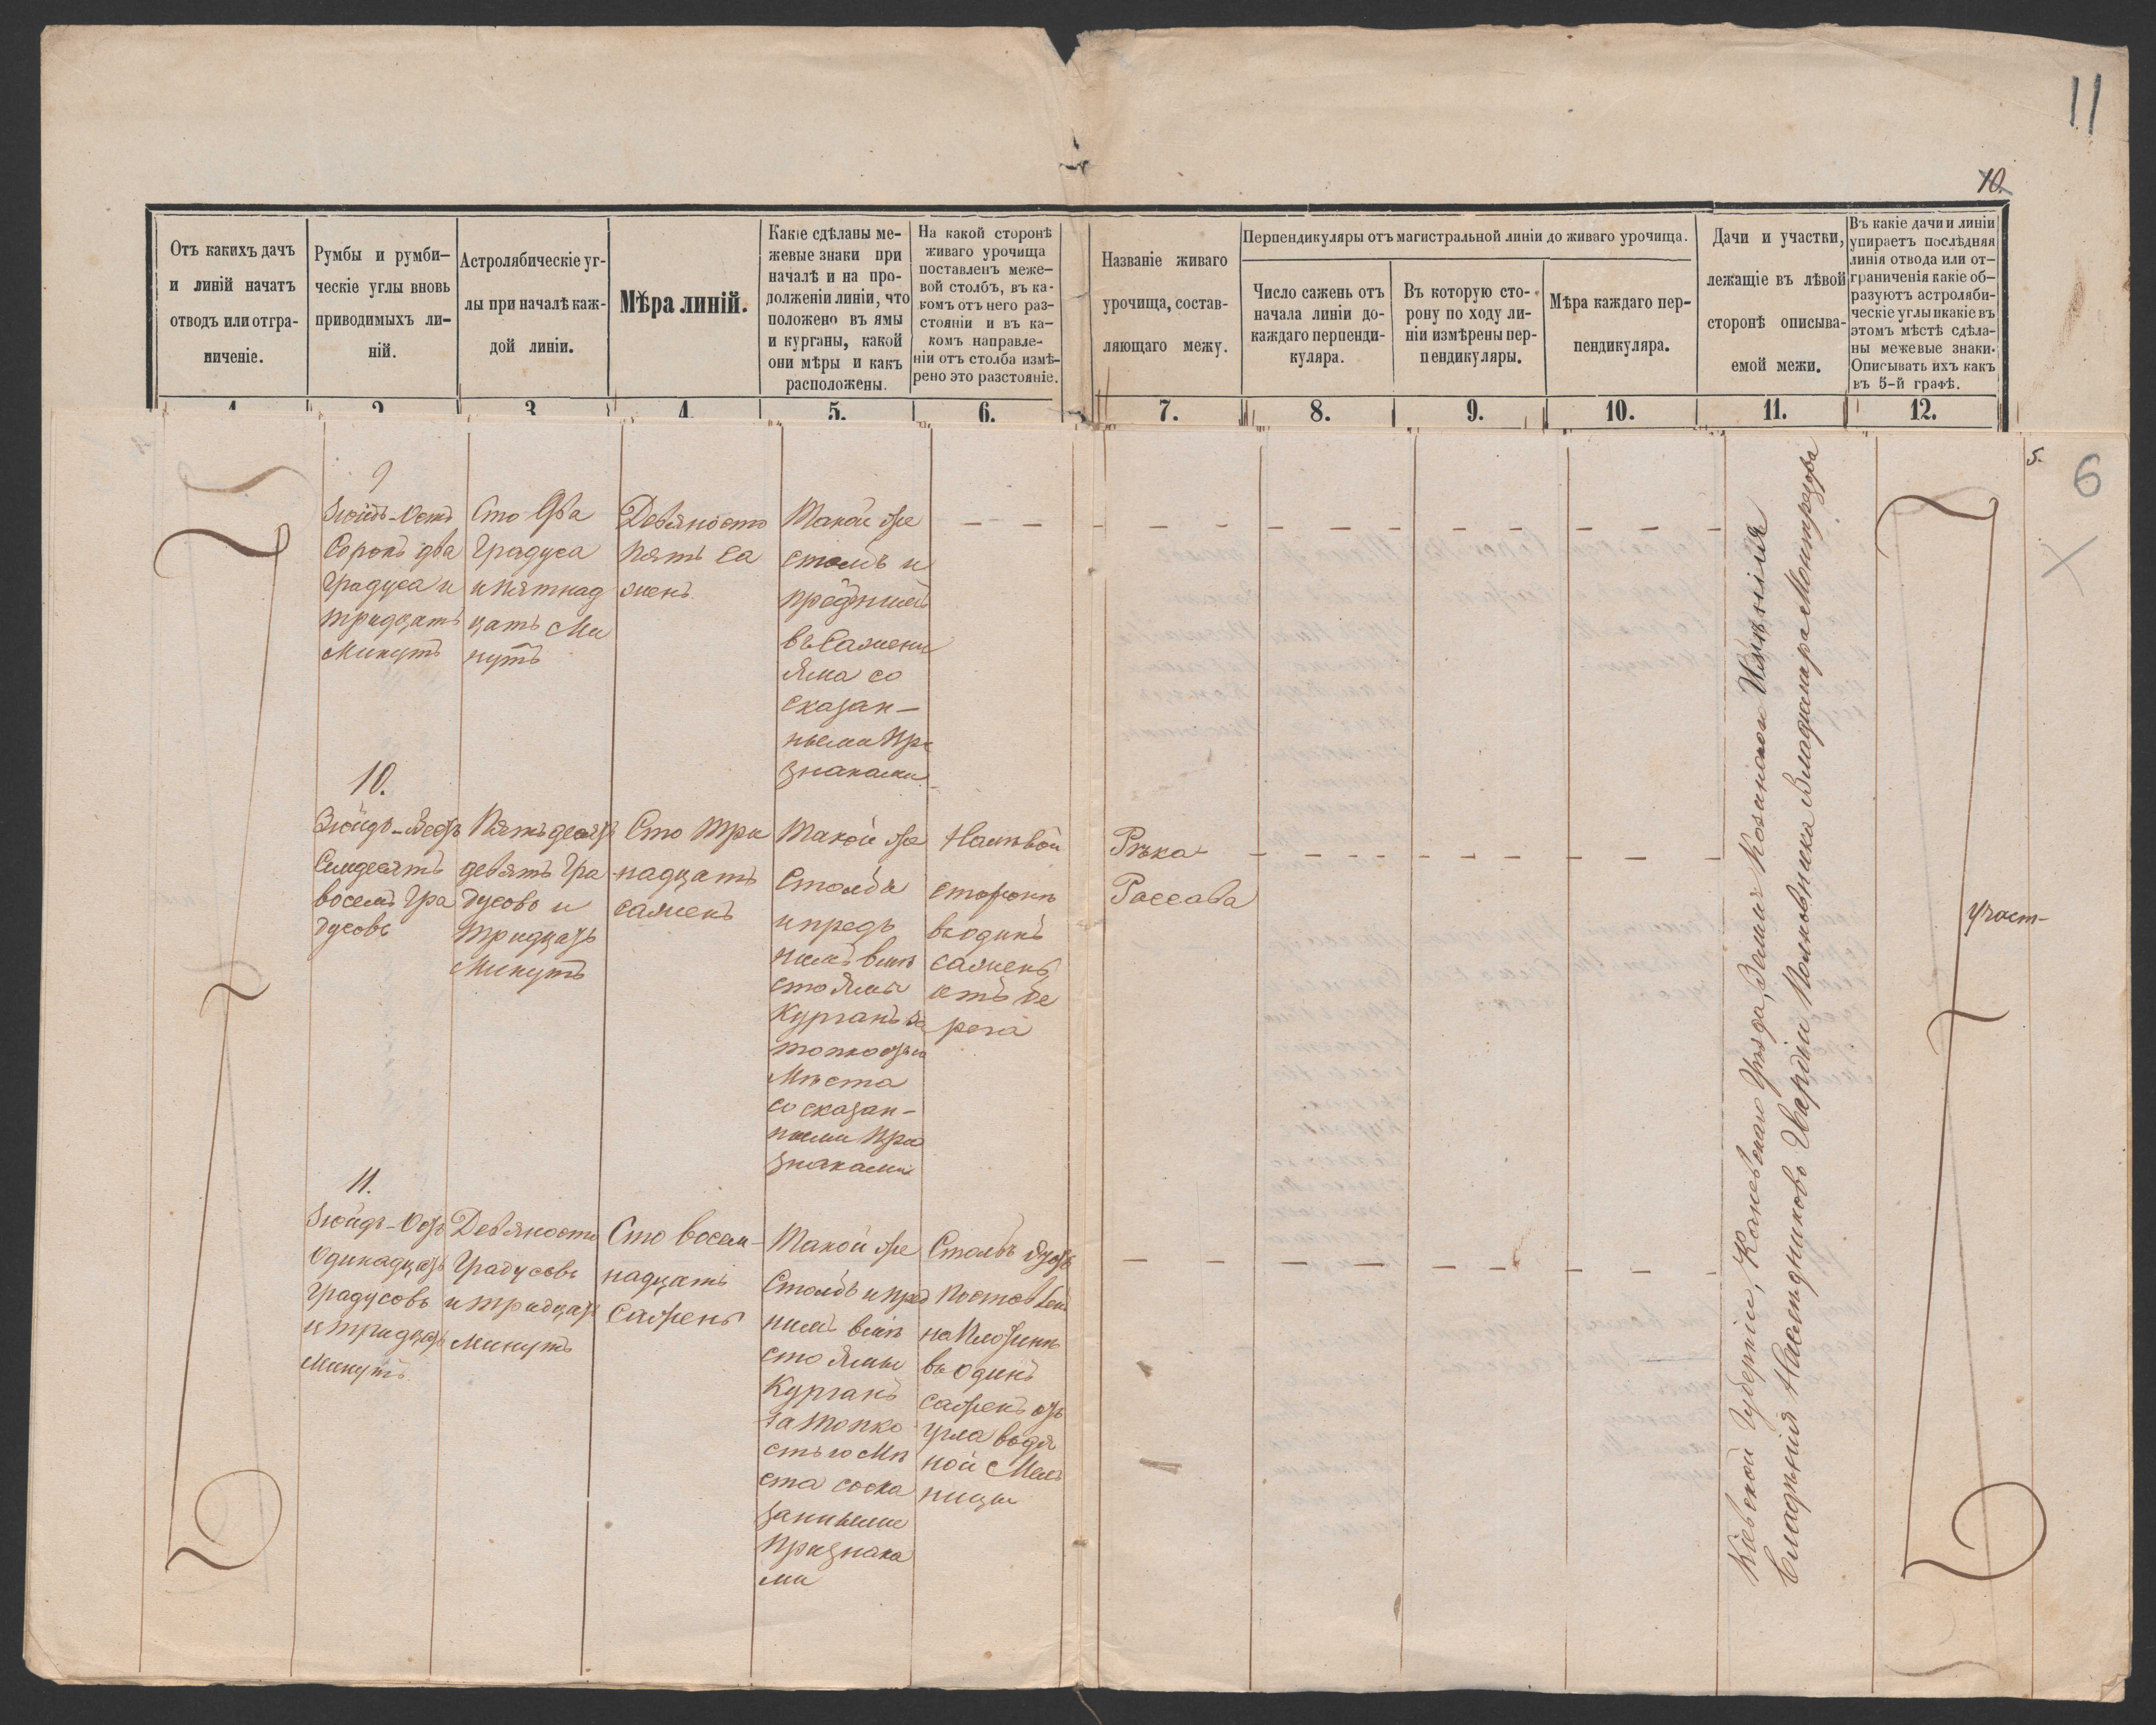 11
10.
Отъ какихъ дачъ
и линій начатъ
отводъ или отгра-
ниченіе.
Румбы и румби-
ческіе углы вновь
приводимыхъ ли-
ній.
Астролябическіе уг-
лы при началѣ каж-
дой линіи.
Мѣра линій.
Какіе сдѣланы ме-
жевые знаки при
началѣ и на про-
долженіи линіи, что
положено въ ямы
и курганы, какой
они мѣры и какъ
расположены.
На какой сторонѣ
живаго урочища
поставленъ меже-
вой столбъ, въ ка-
комъ отъ него раз-
стояніи и въ ка-
комъ направле-
ніи отъ столба измѣ-
рено это разстояніе.
Названіе живаго
урочища, состав-
ляющаго межу.
Перпендикуляры отъ магистральной линіи до живаго урочища.
Число сажень отъ
начала линіи до-
каждаго перпенди-
куляра.
Въ которую сто-
рону по ходу ли-
ніи измѣрены пер-
пендикуляры.
Мѣра каждаго пер-
пендикуляра.
Дачи и участки,
лежащіе въ лѣвой
сторонѣ описыва-
емой межи.
Въ какіе дачи и линіи
упираетъ послѣдняя
линія отвода или от-
граниченія какіе об-
разуютъ астроляби-
ческіе углы и какіе въ
этомъ мѣстѣ сдѣла-
ны межевые знаки.
Описывать ихъ какъ
въ 5-й графѣ.
1 2 3 4 5. 6. 7. 8. 9. 10. 11. 12.
5.
6
9
Зюйдъ-Остъ
Сорокъ два
Градуса и
тридцать
Минутъ
Сто Два
Градуса
и пятнад
цать Ми
нутъ
Девяносто
пять са
женъ
Такой же
столбъ и
предъ нимъ
въ Сажени
Яма со
сказан-
ными при
знаками
10.
Зюйдъ-Вестъ
Семдесятъ
восемь Гра
дусовъ
Пятьдесятъ
девять Гра
дусовъ и
тридцать
Минутъ
Сто три
надцать
саженъ
Такой же
Столбъ
и предъ
нимъ вмѣ
сто Ямы
Курганъ за
топкостью
Мѣста
со сказан-
ными при
знаками
На лѣвой
сторонѣ
въ одинъ
сажень
отъ бе
рега
Рѣка
Россава
11.
Зюйдъ-Остъ
Одинадцать
Градусовъ
и тридцать
Минутъ
Девяносто
Градусовъ
и тридцать
Минутъ
Сто восем-
надцать
сажень
Такой же
Столбъ и пред
нимъ вмѣ
сто Ямы
Курганъ
за топко
стью Мѣ
ста со ска
занными
Признака
ми
Столбъ
поставленъ
на Плотинѣ
въ одинъ
сажень отъ
угла водя
ной Мель
ницы
Кіевской Губерніи, Каневскаго Уѣзда, Земли Козинскаго Имѣнія
Владѣнія Наслѣдниковъ Гвардіи Полковника Владиміра Монтрезора
Участ-